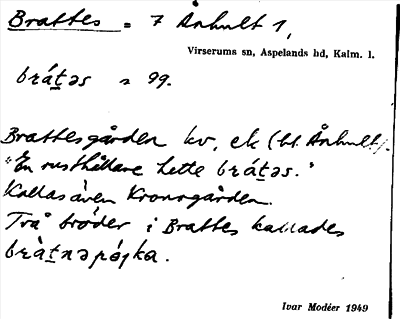 Brattes = 7 Ånhult 1,
Virserums sn, Aspelands hd, Kalm. l.
brát̲əs = 99.
Brattesgården kv, ek (bl. Ånhult).
"En rusthållare hette brát̲əs."
Kallas även Kronogården.
Två bröder i Brattes kallades
bràt̲nəpójka.
Ivar Modéer 1949